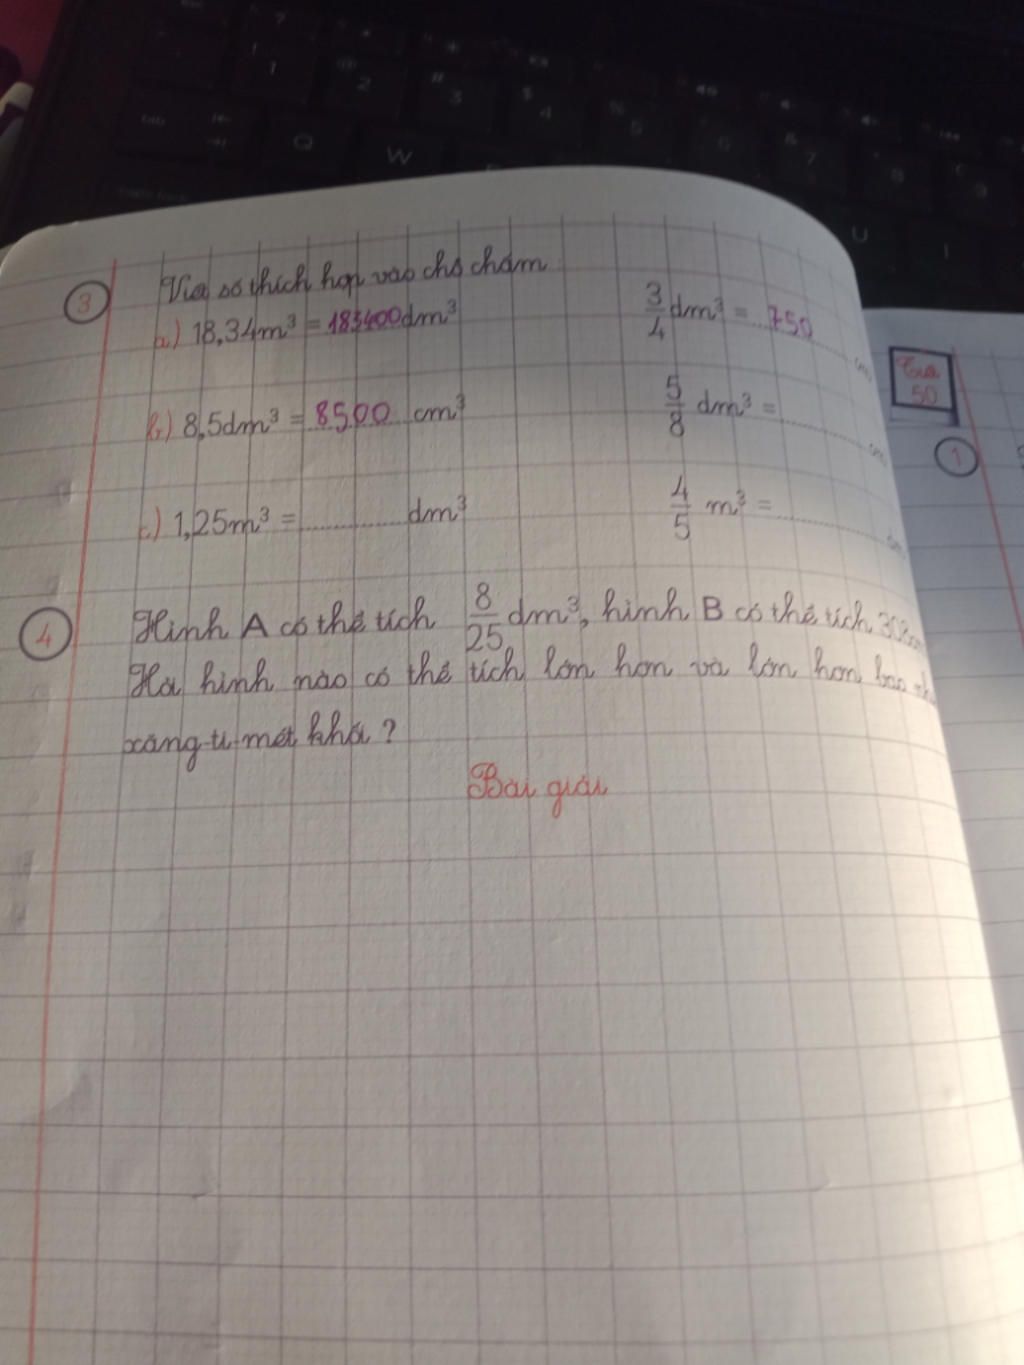 3 Viết số thích hợp vào chỗ chấm
a) 18,34m³ = 183400dm³ 3/4 dm³ = 750
b) 8,5dm³ = 8500 cm³ 5/8 dm³ =
c) 1,25m³ = ............ dm³ 4/5 m³ =
4 Hình A có thể tích 8/25 dm³, hình B có thể tích 308cm
Hỏi hình nào có thể tích lớn hơn và lớn hơn bao
xăng-ti-mét khối?
Bài giải
50
1